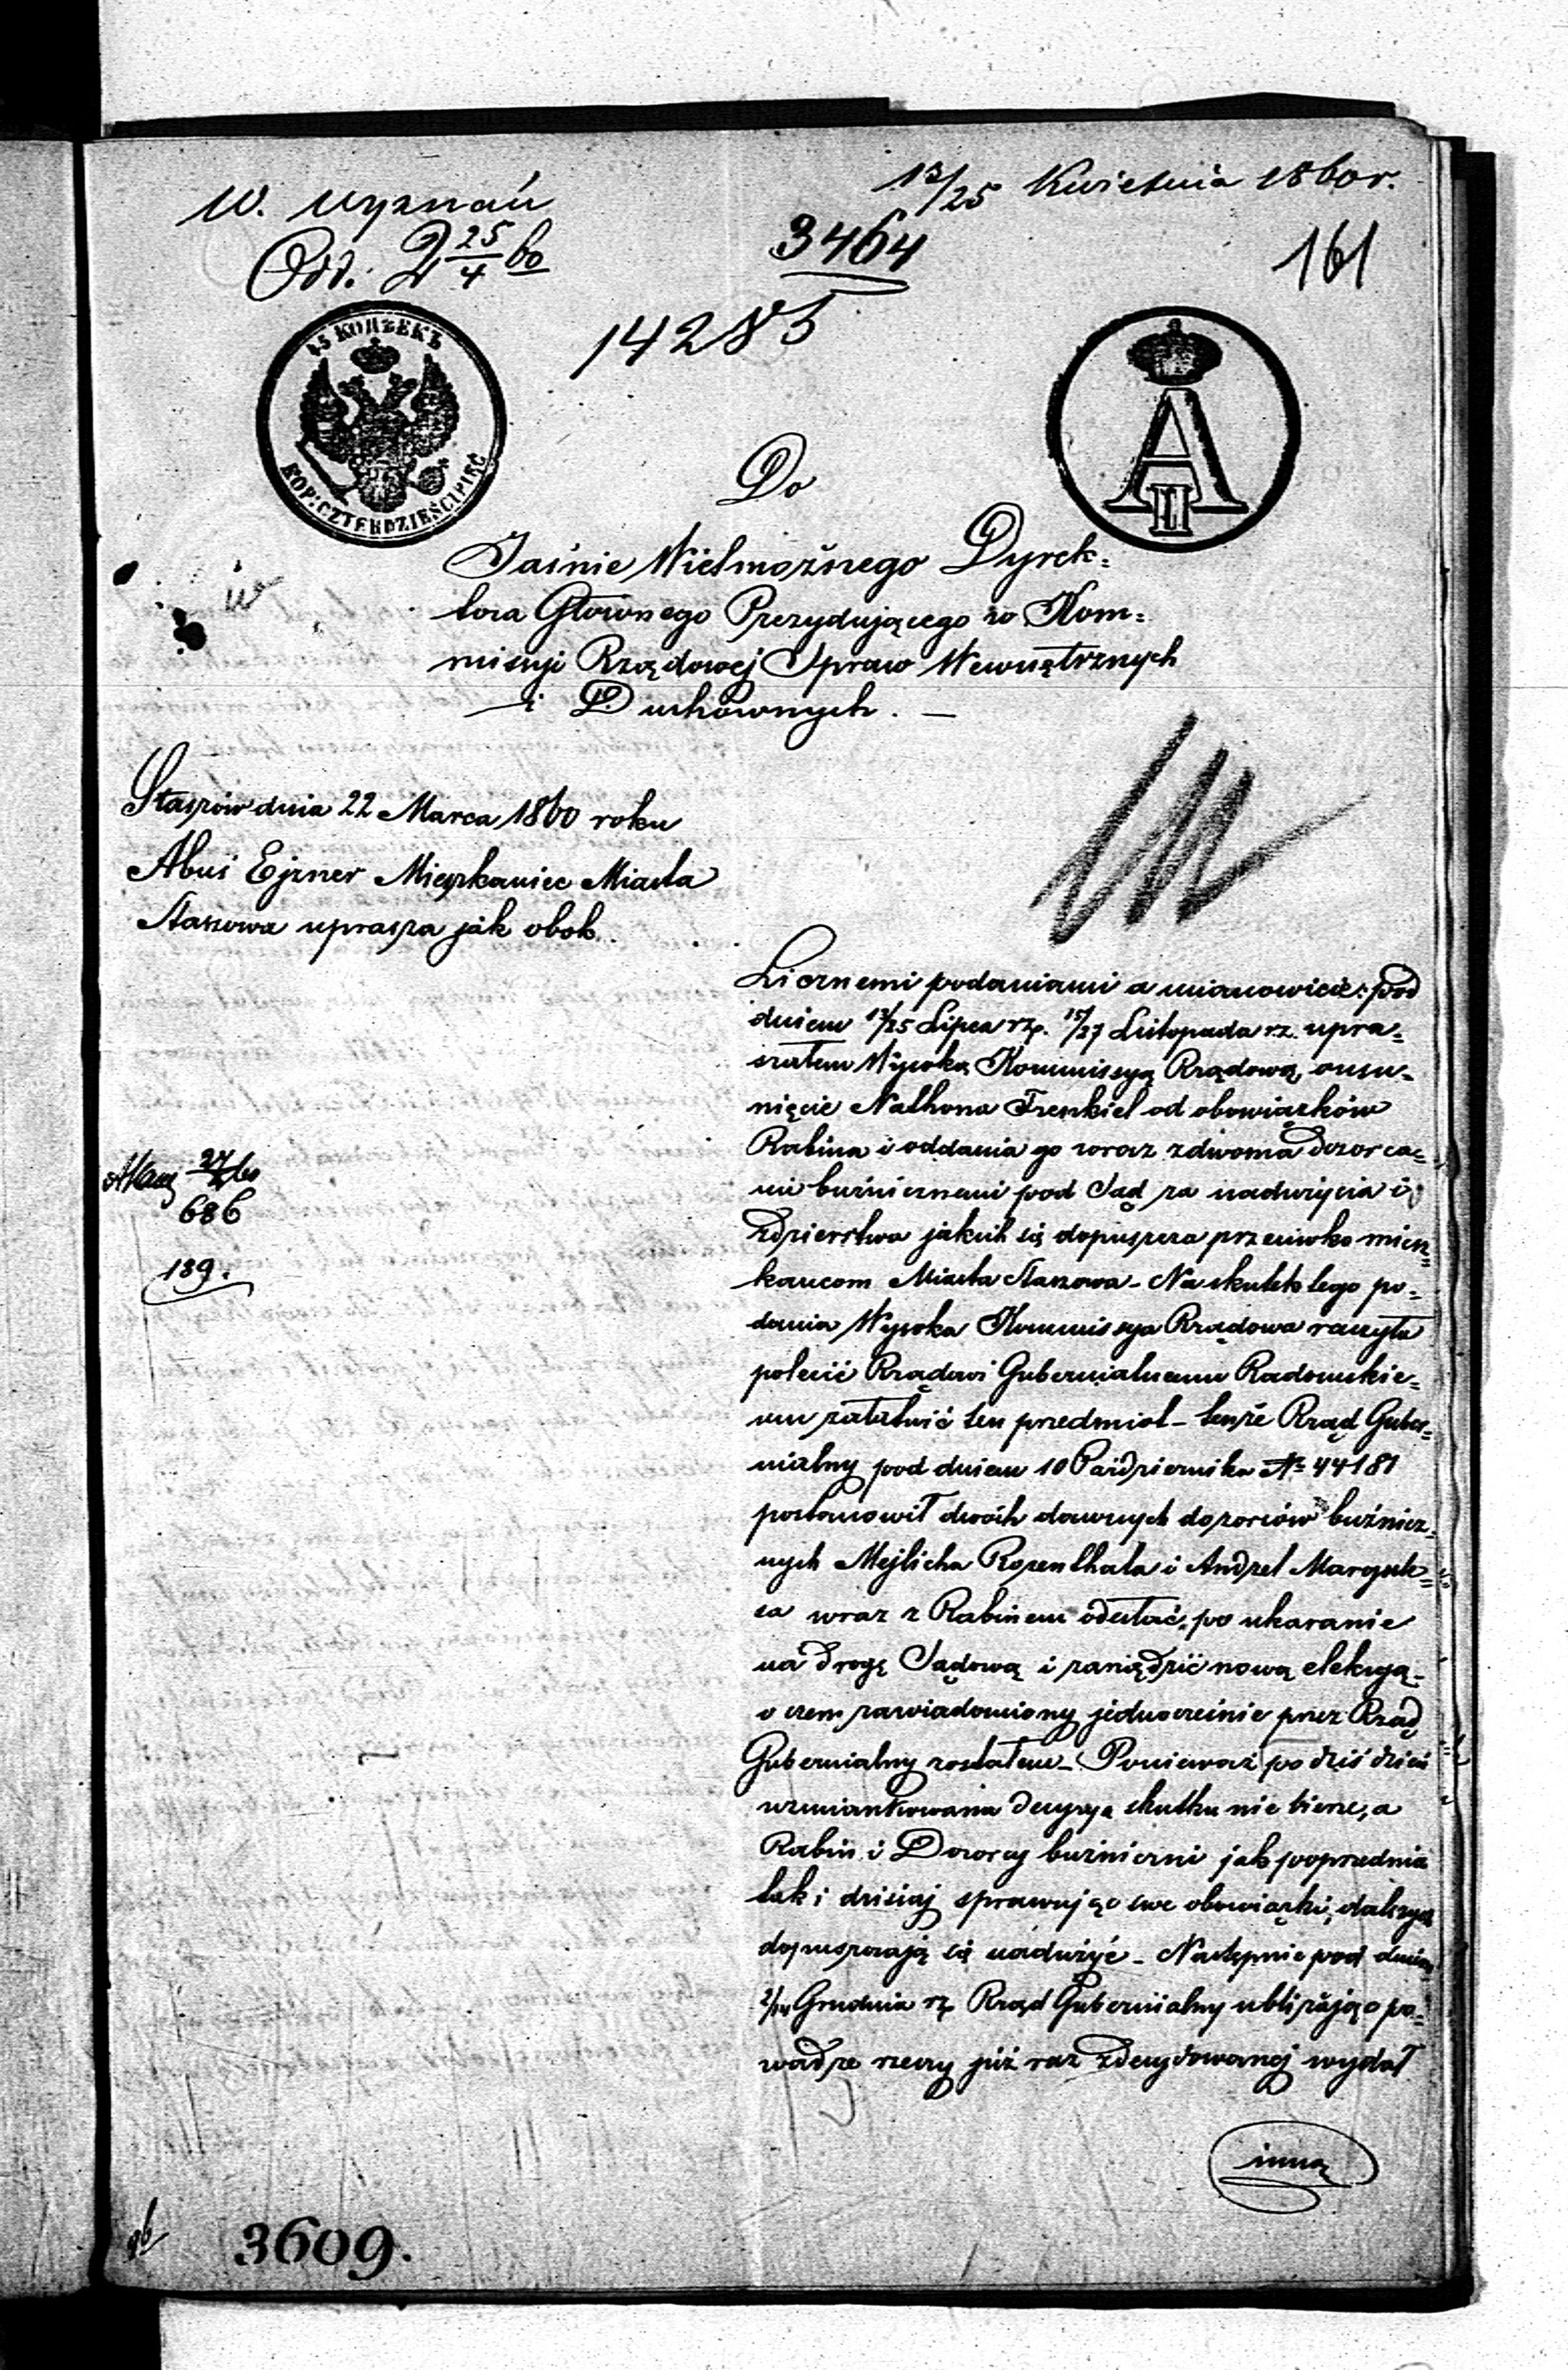 W. Wyznań
13/25 Kwietnia 1860 r.
Odd. 2 25/4 60
3464
161
14285
45 КОПѢЕКЪ
KOP: CZTERDZIEŚCI PIĘĆ
A II
Do
Jaśnie Wielmożnego Dyrek=
tora Głównego Prezydującego w Kom=
missyi Rządowej Spraw Wewnętrznych
i Duchownych. —
Staszów dnia 22 Marca 1860 roku
Abuś Ejzner Mieszkaniec Miasta
Staszowa uprasza jak obok.
Licznemi podaniami a mianowicie: pod
dniem 13/25 Lipca rz. 15/27 Listopada r.z. upra=
szałem Wysoką Kommissyą Rządową, o usu=
nięcie Nathona Frenkiel od obowiązków
Rabina i oddania go wraz z dwoma Dozorca=
mi bużnicznemi pod Sąd za nadużycia i
Zdzierstwa jakich się dopuszcza przeciwko miesz=
kancom Miasta Staszowa – Na skutek tego po=
dania Wysoka Kommissya Rządowa raczyła
polecić Rządowi Gubernialnemu Radomskie=
mu załatwić ten przedmiot – tenże Rząd Guber=
nialny pod dniem 10 Października № 44181
postanowił dwóch dawnych dozorców bużnicz=
nych Mejlicha Rozenthala i Andzel Margule=
sa wraz z Rabinem odesłać po ukaranie
na drogę Sądową i zarządzić nową elekcyą –
o czem zawiadomiony jednocześnie przez Rząd
Gubernialny zostałem – Ponieważ po dziś dzień
wzmiankowana decyzya skutku nie bierze, a
Rabin i Dozorcy bużniczni jak poprzednio
tak i dzisiaj sprawując swe obowiązki, dalszych
dopuszczają się nadużyć – Następnie pod dniem
2/14 Grudnia rz. Rząd Gubernialny ubliżając po=
wadze rzeczy już raz Zdecydowanej wydał
inną
27/4 60
686
189.
3609.